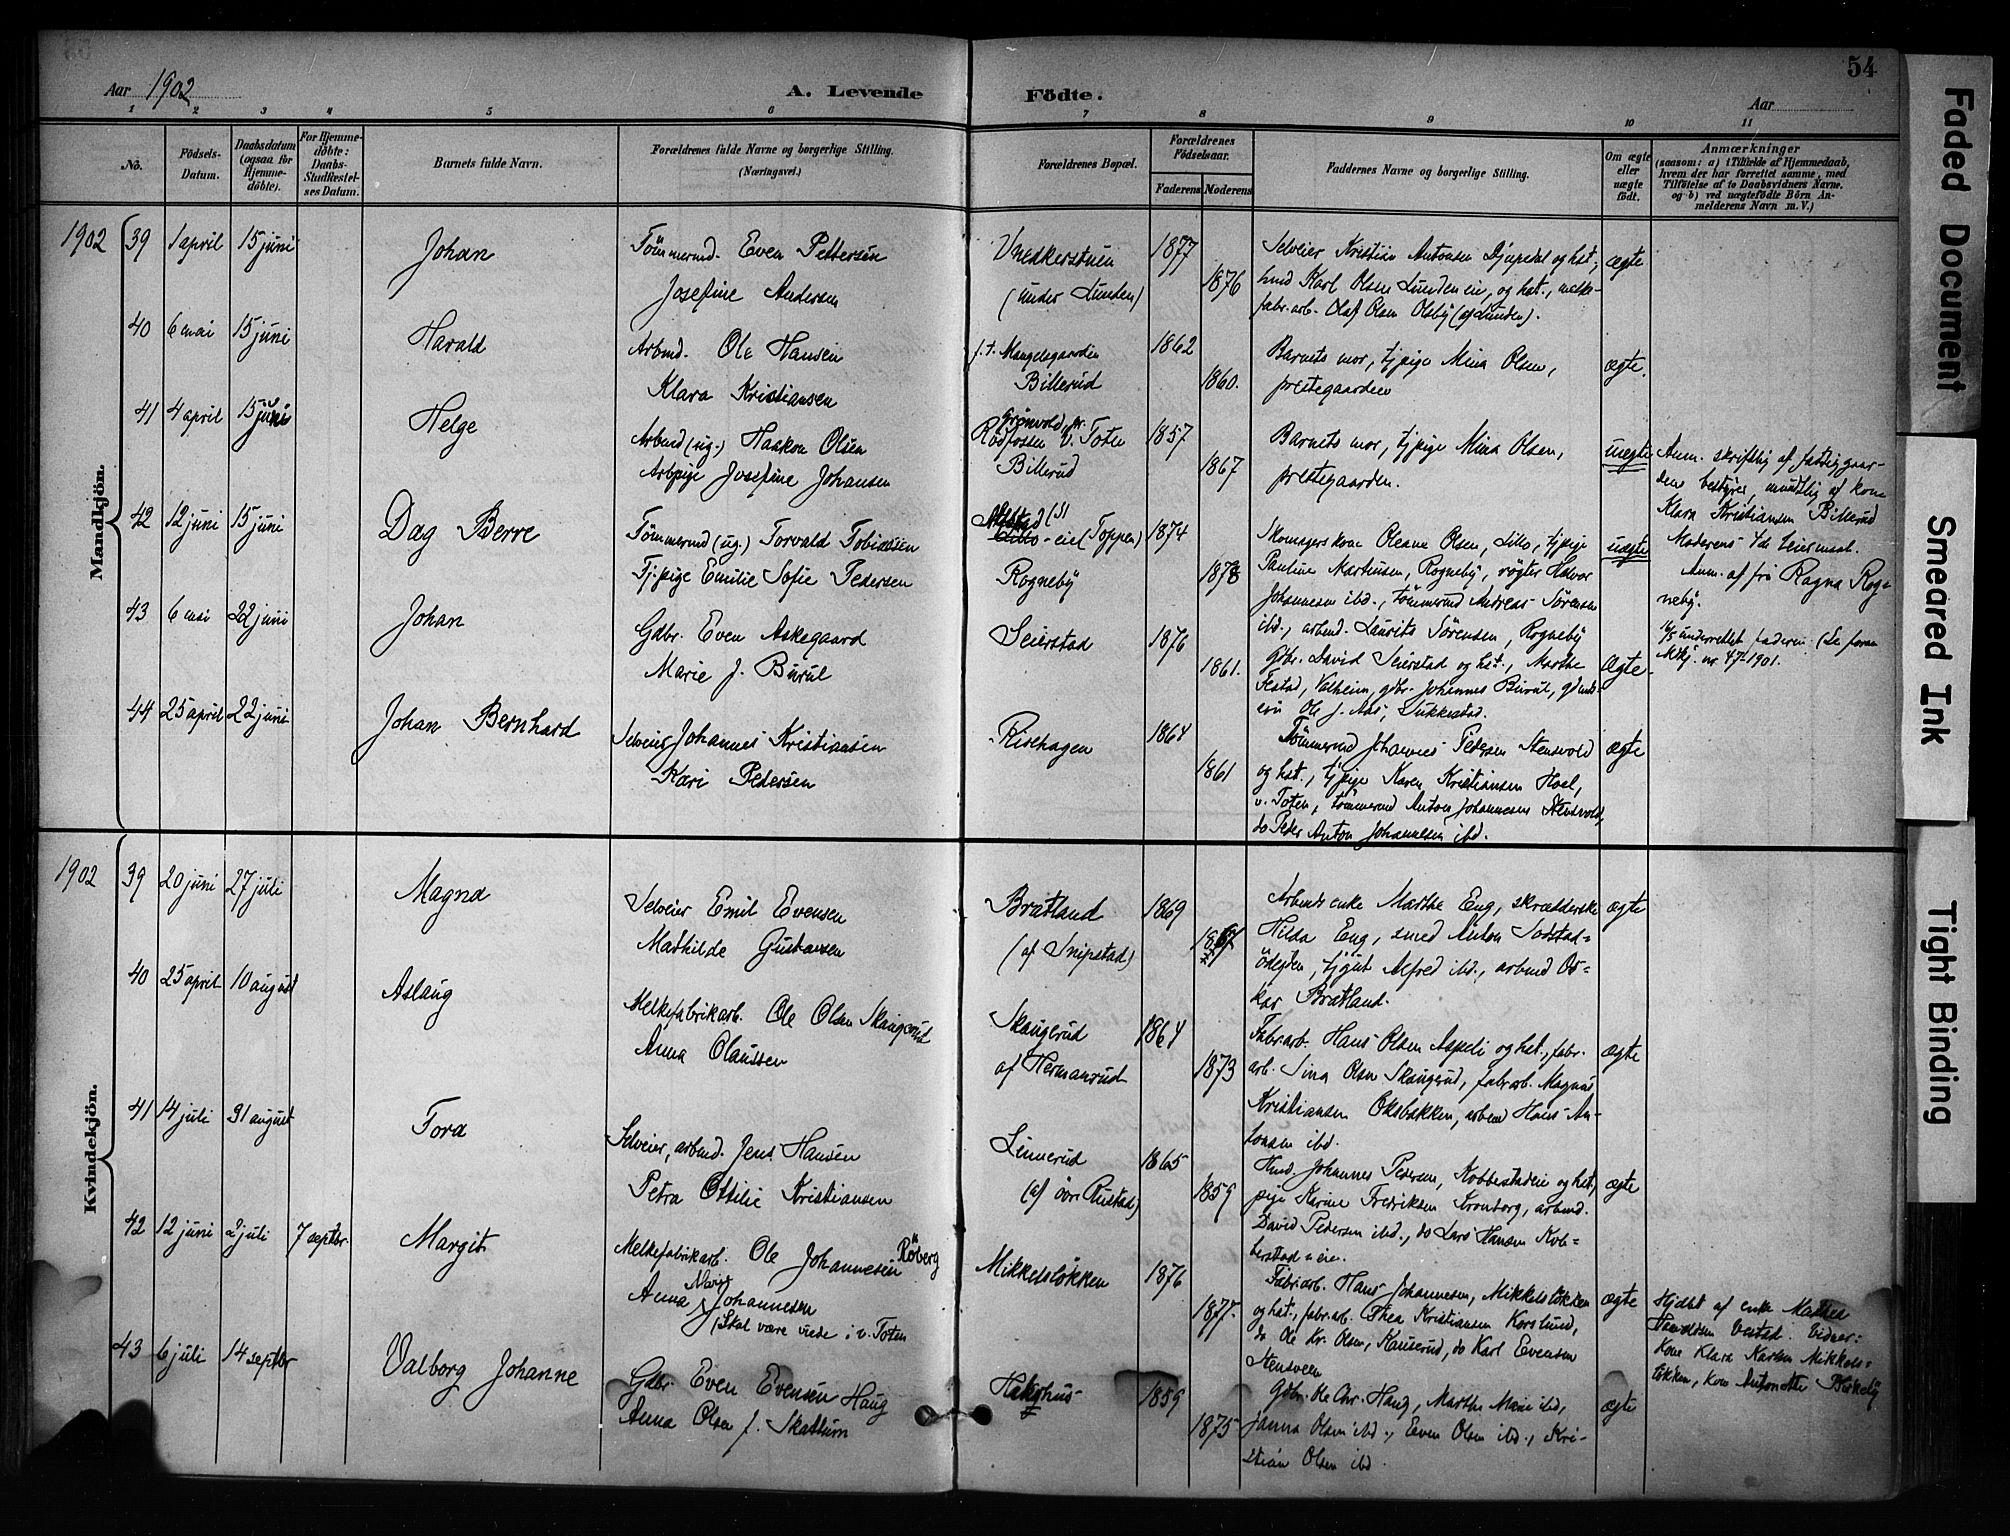 54
Aar 1902
A. Levende
Födte.
Aar
1 2 3 4 5 6 7 8 9 10 11
No.
Födsels-Datum.
Daabsdatum (ogsaa for Hjemme-döbte).
For Hjemme-döbte: Daabs-Stadfæstel-ses Datum.
Barnets fulde Navn.
Forældrenes fulde Navne og borgerlige Stilling. (Næringsvei.)
Forældrenes Bopæl.
Forældrenes Födselsaar.
Faderens
Moderens
Faddernes Navne og borgerlige Stilling.
Om ægte eller uægte födt.
Anmærkninger
(saasom: a) i Tilfælde af Hjemmedaab,
hvem der har forrettet samme, med
Tilföielse af to Daabsvidners Navne.
og b) ved uægtefödte Börn An-
melderens Navn m. V.)
Mandkjön.
1902 39 1 april 15 juni
Johan
Tömmermd. Even Pettersen
Josefine Andersen
(under Lunden)
1877
1876
Selveier Kristian Antonsen Djupdal og hst.,
hmd Karl Olsen Lundeneie, og hst., melke-
fabr.arb. Olaf Olsen Olsby (af Lunden).
ægte
40 6 mai 15 juni
Harald
Arbmd. Ole Hansen
Klara Kristiansen
f. t. Mangelsgaarden
Billerud
1862
1860.
Barnets mor, tjpige Mina Olsen,
prestegaarden
ægte.
41 4 april 15 juni
Helge
Arbmd (ug.) Haakon Olsen
Arbpige Josefine Johansen
Grönvold, pr.
Rødfossen V. Toten
Billerud
1857
1867
Barnets mor, tjpige Mina Olsen,
prestegaarden.
uægte
Anm. skriftlig af fattiggaar-
dens bestyrer, mundtlig af kone
Klara Kristiansen Billerud
Moderens 4de Leiermaal.
42 12 juni 15 juni
Dag Berre
Tömmermd (ug.) Torvald Tobiassen
Tj.pige Emilie Sofie Pedersen
-eie (Toppen)
Rogneby
1874
1878
Skomagerskone Oleane Olsen, Lillo, tjpige
Pauline Martinsen, Rogneby, røgter Halvor
Johannesen ibd., tømmermd Andreas Sörensen
ibd., arbmd. Laurits Sörensen, Rogneby
uægte
Anm. af frö Ragna Rog=
neby.
underrettet faderen. (Se foran
Mkj. nr. 47-1901.
43 6 mai 22 juni
Johan
Gdbr. Even Askegaard
Marie J. Burul
Seierstad
1876
1861.
Gdbr. David Seierstad og hst., Marthe
Festad, Valheim, gdbr. Johannes Burul,
Ole J. Aas, Sukkestad.
Ægte
44 25 april 22 juni
Johan Bernhard
Selveier Johannes Kristiansen
Kari Pedersen
Risehagen
1864
1861
Tömmermd Johannes Pedersen Stensvold
og hst., tjpige Karen Kristiansen Hoel,
v. Toten, tömmermd Anton Johannesen Stensvold,
do Peder Anton Johannesen ibd.
ægte
Kvindekjön.
1902 39 20 juni 27 juli
Magna
Selveier Emil Evensen
Mathilde Gustavsen
Bratland
(af Snipstad)
1869
Arbmds enke Marthe Eng, skrædderske
Hilda Eng, smed Anton Sodstad=
ödegden, tjgut Alfred ibd., arbmd Os=
kar Bratland.
ægte
40 25 april 10 august
Aslaug
Melkefabrikarb. Ole Olsen Skaugerud
Anna Olaussen
Skaugerud
af Hermanrud
1864
1873
Fabr.arb. Hans Olsen Aspeli og hst., fabr.
arb. Sina Olsen Skaugerud, fabr.arb. Magnus
Kristiansen Oksbakken, arbmd Hans An-
tonsen ibd.
ægte
41 14 juli 31 august
Tora
Selveier, arbmd. Jens Hansen
Petra Ottilie Kristiansen
Linnerud
(af övr. Rustad)
1865
1859
Hmd. Johannes Pedersen, Kobbestadeie og hst,
pige Karine Fredriksen Kronborg, arbmd.
David Pedersen ibd., do Lars Hansen Kob=
berstad=eie.
ægte
42 12 juni 2 juli 7 septbr.
Margit
Melkefabrikarb. Ole Johannesen Röberg
Anna Marie Johannesen
(Skal være viede i v. Toten
Mikkelslökken
1876
1877
Fabr.arb. Hans Johannesen, Mikkelslökken
og hst., fabr.arb. Thea Kristiansen Korslund,
do Ole Kr. Olsen, Kauserud, do Karl Evensen
Stensveen
ægte
Hjdbt af enke Mathea
Vestad. Vidner:
Kone Klara Karlsen Mikkels=
lökken, kone Antonette
43 6 juli 14 septbr
Valborg Johanne
Gdbr. Even Evensen Haug
Anna Olsen f. Skattum
1859
1875
Gdbr. Ole Chr. Haug, Marthe Marie ibd,
Janna Olsen ibd., Even Olsen ibd., Kri-
stian Olsen ibd.
ægte
Faded Document
Smeared Ink
Tight Binding